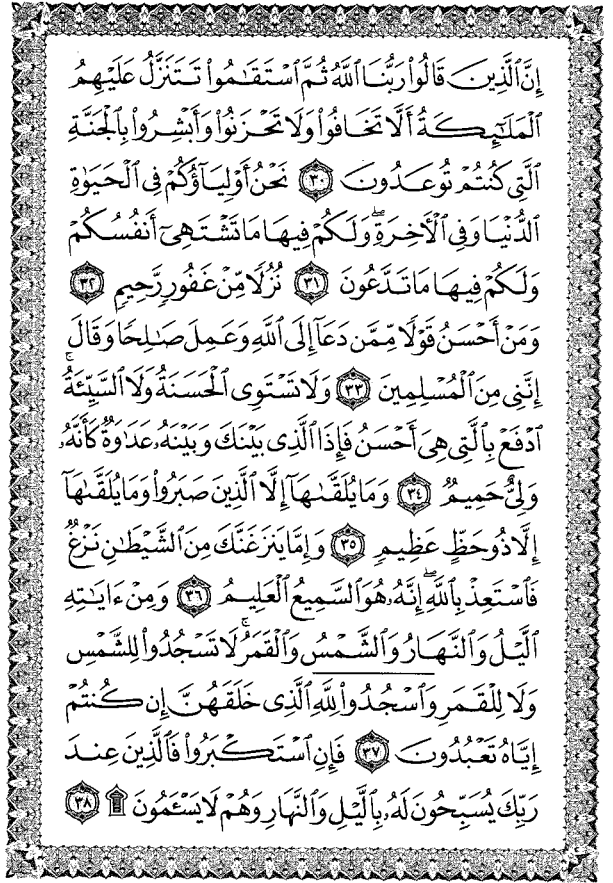 إِنَّ ٱلَّذِينَ قَالُوا۟ رَبُّنَا ٱللَّهُ ثُمَّ ٱسْتَقَٰمُوا۟ تَتَنَزَّلُ عَلَيْهِمُ
ٱلْمَلَٰٓئِكَةُ أَلَّا تَخَافُوا۟ وَلَا تَحْزَنُوا۟ وَأَبْشِرُوا۟ بِٱلْجَنَّةِ
ٱلَّتِى كُنتُمْ تُوعَدُونَ ٣٠ نَحْنُ أَوْلِيَآؤُكُمْ فِى ٱلْحَيَوٰةِ
ٱلدُّنْيَا وَفِى ٱلْءَاخِرَةِ ۖ وَلَكُمْ فِيهَا مَا تَشْتَهِىٓ أَنفُسُكُمْ
وَلَكُمْ فِيهَا مَا تَدَّعُونَ ٣١ نُزُلًا مِّنْ غَفُورٍ رَّحِيمٍ ٣٢
وَمَنْ أَحْسَنُ قَوْلًا مِّمَّن دَعَآ إِلَى ٱللَّهِ وَعَمِلَ صَٰلِحًا وَقَالَ
إِنَّنِى مِنَ ٱلْمُسْلِمِينَ ٣٣ وَلَا تَسْتَوِى ٱلْحَسَنَةُ وَلَا ٱلسَّيِّئَةُ ۚ
ٱدْفَعْ بِٱلَّتِى هِىَ أَحْسَنُ فَإِذَا ٱلَّذِى بَيْنَكَ وَبَيْنَهُۥ عَدَٰوَةٌ كَأَنَّهُۥ
وَلِىٌّ حَمِيمٌ ٣٤ وَمَا يُلَقَّىٰهَآ إِلَّا ٱلَّذِينَ صَبَرُوا۟ وَمَا يُلَقَّىٰهَآ
إِلَّا ذُو حَظٍّ عَظِيمٍ ٣٥ وَإِمَّا يَنزَغَنَّكَ مِنَ ٱلشَّيْطَٰنِ نَزْغٌ
فَٱسْتَعِذْ بِٱللَّهِ ۖ إِنَّهُۥ هُوَ ٱلسَّمِيعُ ٱلْعَلِيمُ ٣٦ وَمِنْ ءَايَٰتِهِ
ٱلَّيْلُ وَٱلنَّهَارُ وَٱلشَّمْسُ وَٱلْقَمَرُ ۚ لَا تَسْجُدُوا۟ لِلشَّمْسِ
وَلَا لِلْقَمَرِ وَٱسْجُدُوا۟ لِلَّهِ ٱلَّذِى خَلَقَهُنَّ إِن كُنتُمْ
إِيَّاهُ تَعْبُدُونَ ٣٧ فَإِنِ ٱسْتَكْبَرُوا۟ فَٱلَّذِينَ عِندَ
رَبِّكَ يُسَبِّحُونَ لَهُۥ بِٱلَّيْلِ وَٱلنَّهَارِ وَهُمْ لَا يَسْـَٔمُونَ ۩ ٣٨